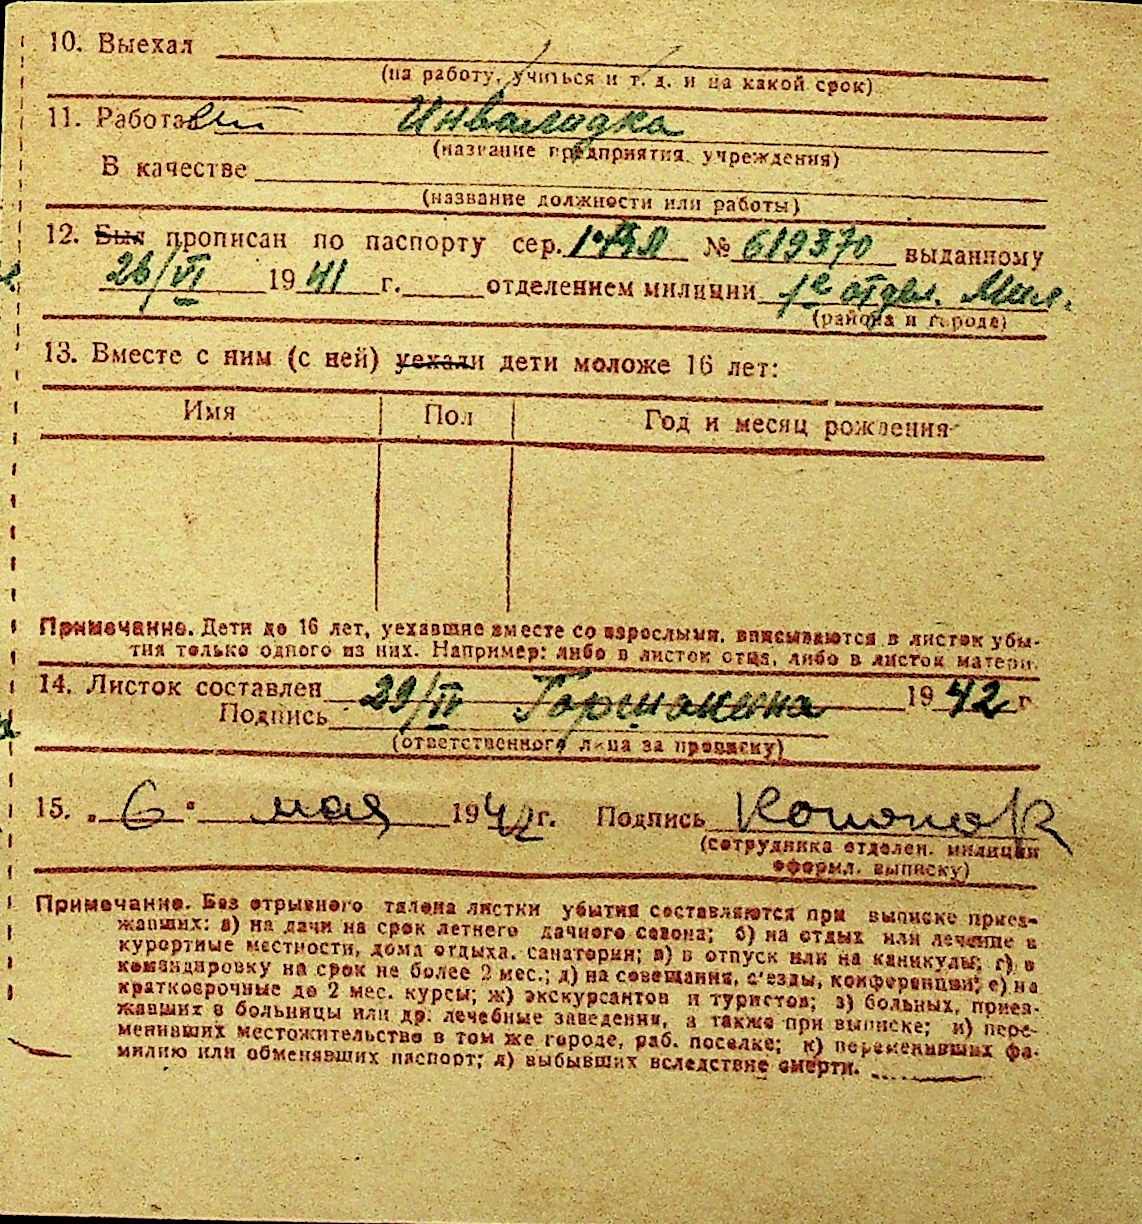 10. Выехал
(на работу, учиться и т. д. и на какой срок)
11. Работает Инвалидка
(название предприятия, учреждения)
В качестве
(название должности или работы)
12. Был прописан по паспорту сер. № 619370 выданному
26/VI 1941 г. отделением милиции 1е отдел. Мил.
(района и города)
13. Вместе с ним (с ней) уехали дети моложе 16 лет:
Имя Пол Год и месяц рождения
Примечание. Дети до 16 лет, уехавшие вместе со взрослыми, вписываются в листок убы-
тия только одного из них. Например: либо в листок отца, либо в листок матери.
14. Листок составлен 29/IV 1942 г
Подпись Горшонина
(ответственного лица за прописку)
15. „6" мая 1942 г. Подпись
(сотрудника отделен. милиции
оформл. выписку)
Примечание. Без отрывного талона листки убытия составляются при выписке приез-
жавших: а) на дачи на срок летнего дачного сезона; б) на отдых или лечение в
курортные местности, дома отдыха, санатории; в) в отпуск или на каникулы; г) в
командировку на срок не более 2 мес.; д) на совещания, с'езды, конференции; е) на
краткосрочные до 2 мес. курсы; ж) экскурсантов и туристов; з) больных, приез-
жавших в больницы или др. лечебные заведения, а также при выписке; и) пере-
менивших местожительство в том же городе, раб. поселке; к) переменивших фа-
милию или обменявших паспорт; л) выбывших вследствие смерти.